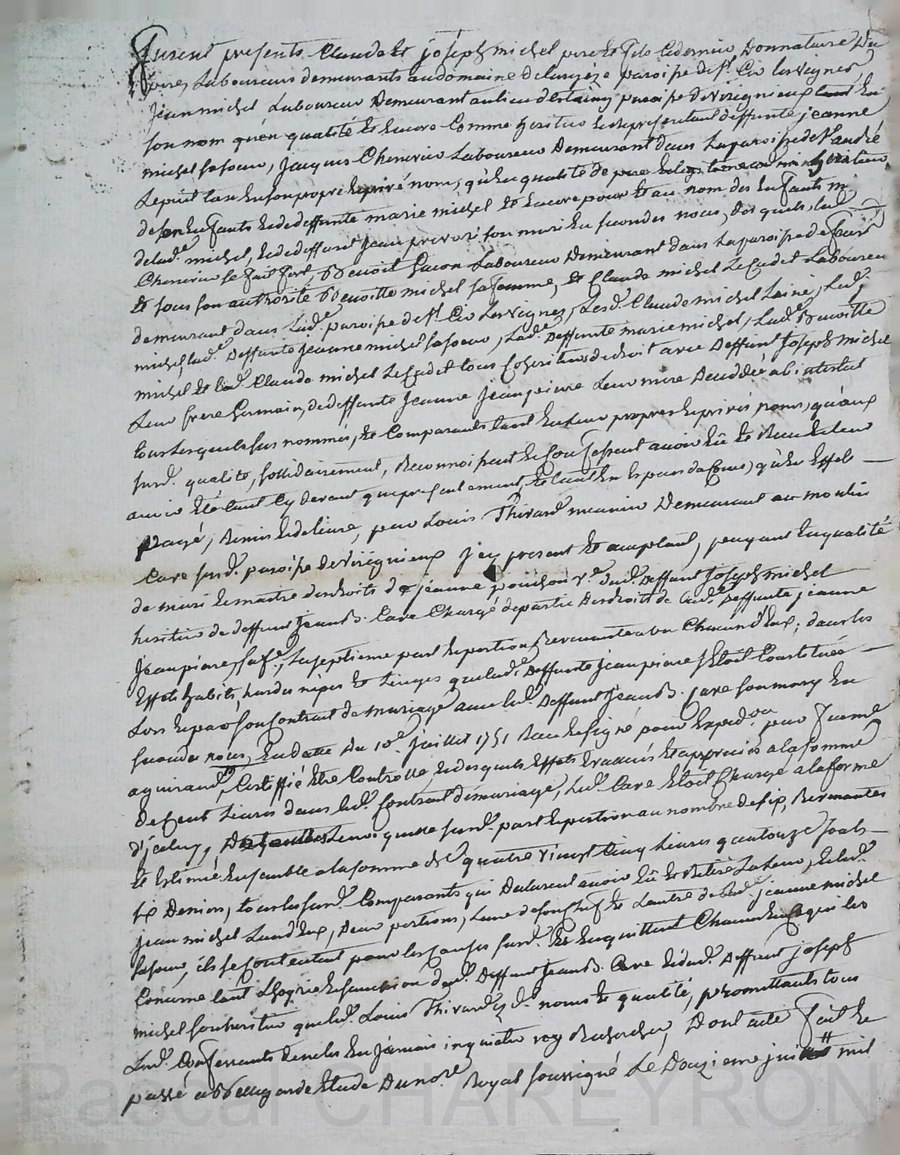 Furent presents Claude et joseph michel pere et fils ce dernier Donnataire Du
pere, Laboureurs demeurants au domaine de paroisse de st Cir les vignes
jean michel Laboureur Demeurant au lieu d' paroisse de virignieux tant en
son nom qu'en qualité et encore Comme heritier et representant deffunte jeanne
michel sa soeur, jacques Chenevier Laboureur Demeurant dans la paroisse de st andré
Lepuil tant en son propre et privé nom, qu'en qualité de pere et
de ses Enfants et de deffunte marie michel et encore pour et au nom des Enfants
de lad. michel, et de deffunt jean son mari en secondes noces, desquels led.
Chenevier se fait fort, Benoit Laboureur Demeurant dans la paroisse de
et sous son authorité Benoitte michel sa femme, et Claude michel Le Cadet Laboureur
demeurant dans lad. paroisse de st Cir Les Vignes, Lesd. Claude michel Laine, Led. j
michel lad. Deffunte jeanne michel sa soeur, lad. Deffunte marie michel, lad. Benoitte
michel et led. Claude michel Le Cadet tous Coheritiers de droit avec Deffunt Joseph michel
Leur frere Germain, de deffunte jeanne jeanpierre Leur mere Decedée ab intestat
tous lesquels sus nommés, et Comparants tant en leur propres et privés noms, qu'aux
susd. qualité, sollidairement, Reconnoissent et Confessent avoir Eu et Receu de leur
avoir été tant Cy devant que presentement, tant en Especes de Cours, qu'en Effets
payé, Remis et delivré, par Louis Thivard meunier Demeurant au moulin
Cave susd. paroisse de virignieux jcy present et acceptant, payant en qualité
de mari et maitre des droits de jeanne ve dud. Deffunt Joseph michel
heritier de deffunt jean B. Cave Chargé de partie Des droits de lad. Deffunte jeanne
jeanpierre, sa fe., La septieme part et portion Revenante a un Chacun d'Eux; dans les
Effets habits, hardes nipes et Linges que lad. Deffunte jeanpierre s'Etoit Constituée
Lors et par son Contrat de mariage avec led. Deffunt jean B. Cave son mary en
secondes noces, En datte Du 10e juillet 1751 Receu et signé pour Expedon par jear me
aguiraud, Certiffié Etre Controllé, lesdesquels Effets Evalués et appreciés a la somme
De Cent Livres dans led. Contrat de mariage, led. Cave Etoit Chargé a la forme
d'jceluy, susd. part et portion au nombre de six, Revenantes
et Estimé Ensemble a la somme de quatre vingt Cinq livres quatorze sols
six Deniers, tous les susd. Comparants qui Declarent avoir Eu et Retiré La leur, et led.
jean michel Lun d'Eux, Deux portions, Lune de son Chef et Lautre de lad. jeanne michel
sa soeur, ils se Contentent pour les Causes susd. et En quittent Chacun En Ce qui les
Concerne tant L' et succession dud. Deffunt jean B. Cave et dud. Deffunt joseph
michel son heritier que led. Louis Thivard es d. noms et qualité, promettants tous
Lesd. Confessants de ne les En jamais inquieter ny Rechercher, Dont acte fait et
passé a Bellegarde Etude Du nore Royal soussigné Le Douzieme juin mil
Pascal CHAREYRON